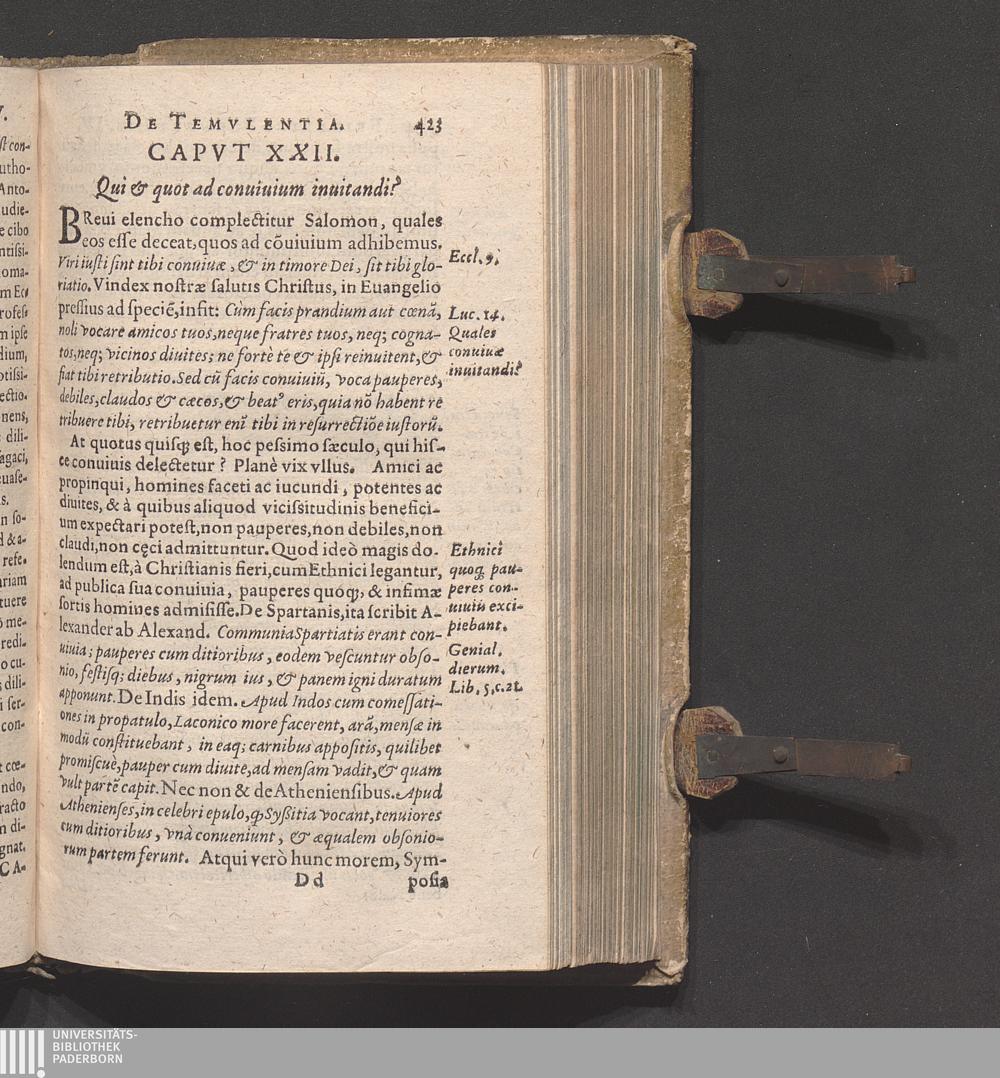 DE TEMVLENTIA. 423
CAPVT XXII.
Qui & quot ad conuiuium inuitandi?
BReui elencho complectitur Salomon, quales
eos esse deceat, quos ad cõuiuium adhibemus.
Viri iusti sint tibi conuiuæ, & in timore Dei, sit tibi glo-
riatio. Vindex nostræ salutis Christus, in Euangelio
pressius ad speciẽ, infit: Cùm facis prandium aut cœnã,
noli vocare amicos tuos, neque fratres tuos, neq; cogna-
tos, neq; vicinos diuites; ne fortè te & ipsi reinuitent, &
fiat tibi retributio. Sed cũ facis conuiuiũ, voca pauperes,
debiles, claudos & cæcos, & beatꝰ eris, quia nõ habent re
tribuere tibi, retribuetur enĩ tibi in resurrectiõe iustorũ.
At quotus quisq; est, hoc pessimo sæculo, qui his-
ce conuiuis delectetur? Planè vix vllus. Amici ac
propinqui, homines faceti ac iucundi, potentes ac
diuites, & à quibus aliquod vicissitudinis benefici-
um expectari potest, non pauperes, non debiles, non
claudi, non cęci admittuntur. Quod ideò magis do-
lendum est, à Christianis fieri, cum Ethnici legantur,
ad publica sua conuiuia, pauperes quoq;, & infimæ
sortis homines admisisse. De Spartanis, ita scribit A-
lexander ab Alexand. Communia Spartiatis erant con-
uiuia; pauperes cum ditioribus, eodem vescuntur obso-
nio, festisq; diebus, nigrum ius, & panem igni duratum
apponunt. De Indis idem. Apud Indos cum comessati-
ones in propatulo, Laconico more facerent, arã, mensæ in
modũ constituebant, in eaq; carnibus appositis, quilibet
promiscuè, pauper cum diuite, ad mensam vadit, & quam
vult partẽ capit. Nec non & de Atheniensibus. Apud
Athenienses, in celebri epulo, ꝙ Syßitia vocant, tenuiores
cum ditioribus, vnà conueniunt, & æqualem obsonio-
rum partem ferunt. Atqui verò hunc morem, Sym-
Dd posia
Eccl. 9.
Luc. 14.
Quales
conuiuæ
inuitandi?
Ethnici
quoq; pau-
peres con-
uiuiũ exci-
piebant.
Genial.
dierum.
Lib. 5. c. 21.
V.
st con-
utho-
Anto-
udie-
e cibo
ntissi-
oma-
m Ec-
rofes-
m ipse
dium,
otissi-
ectio.
nens,
dili-
agaci,
uase-
s.
n so-
d & a-
refe-
riam
tuere
õ me-
redi-
o cu-
dili-
i ser-
con-
t cœ-
ndo,
racto
n di-
gnat.
CA-
UNIVERSITÄTS-
BIBLIOTHEK
PADERBORN